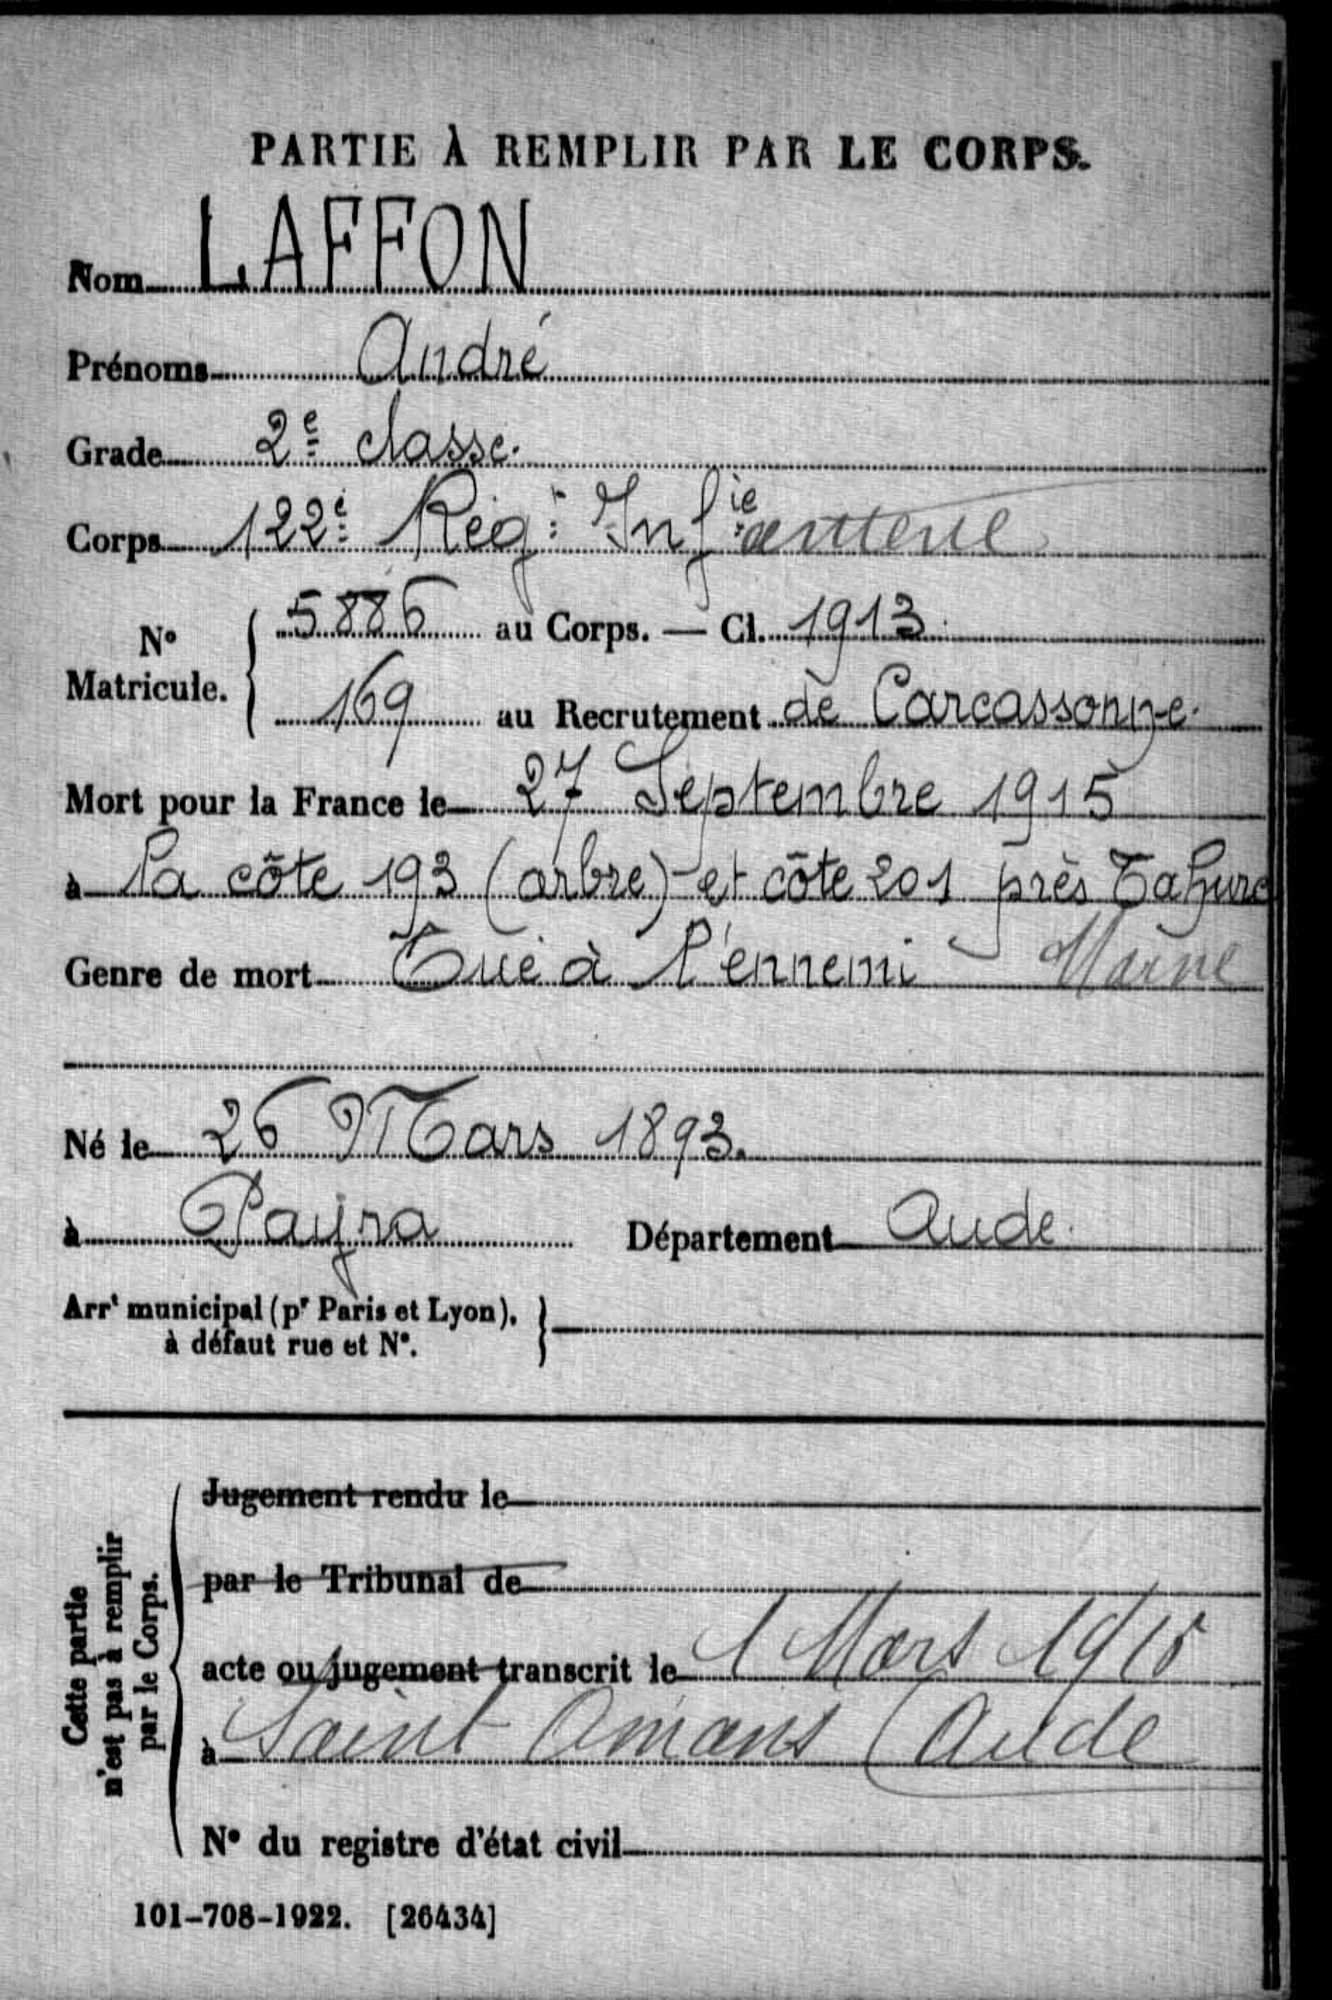 PARTIE À REMPLIR PAR LE CORPS.
Nom LAFFON
Prénoms André
Grade 2e classe.
Corps 122e Rég: Inf ie anterie
N° Matricule. { 5886 au Corps. — Cl. 1913.
169 au Recrutement de Carcassonne.
Mort pour la France le 27 Septembre 1915
à la côte 193 (arbre) et côte 201 près Tahure
Genre de mort Tué à l'ennemi Marne
Né le 26 Mars 1893.
à Payra Département Aude.
Arrt municipal (pr Paris et Lyon), }
à défaut rue et N°.
Cette partie
n'est pas à remplir
par le Corps.
Jugement rendu le
par le Tribunal de
acte ou jugement transcrit le 1 Mars 1916
à Saint Amans (Aude
N° du registre d'état civil
101-708-1922. [26434]